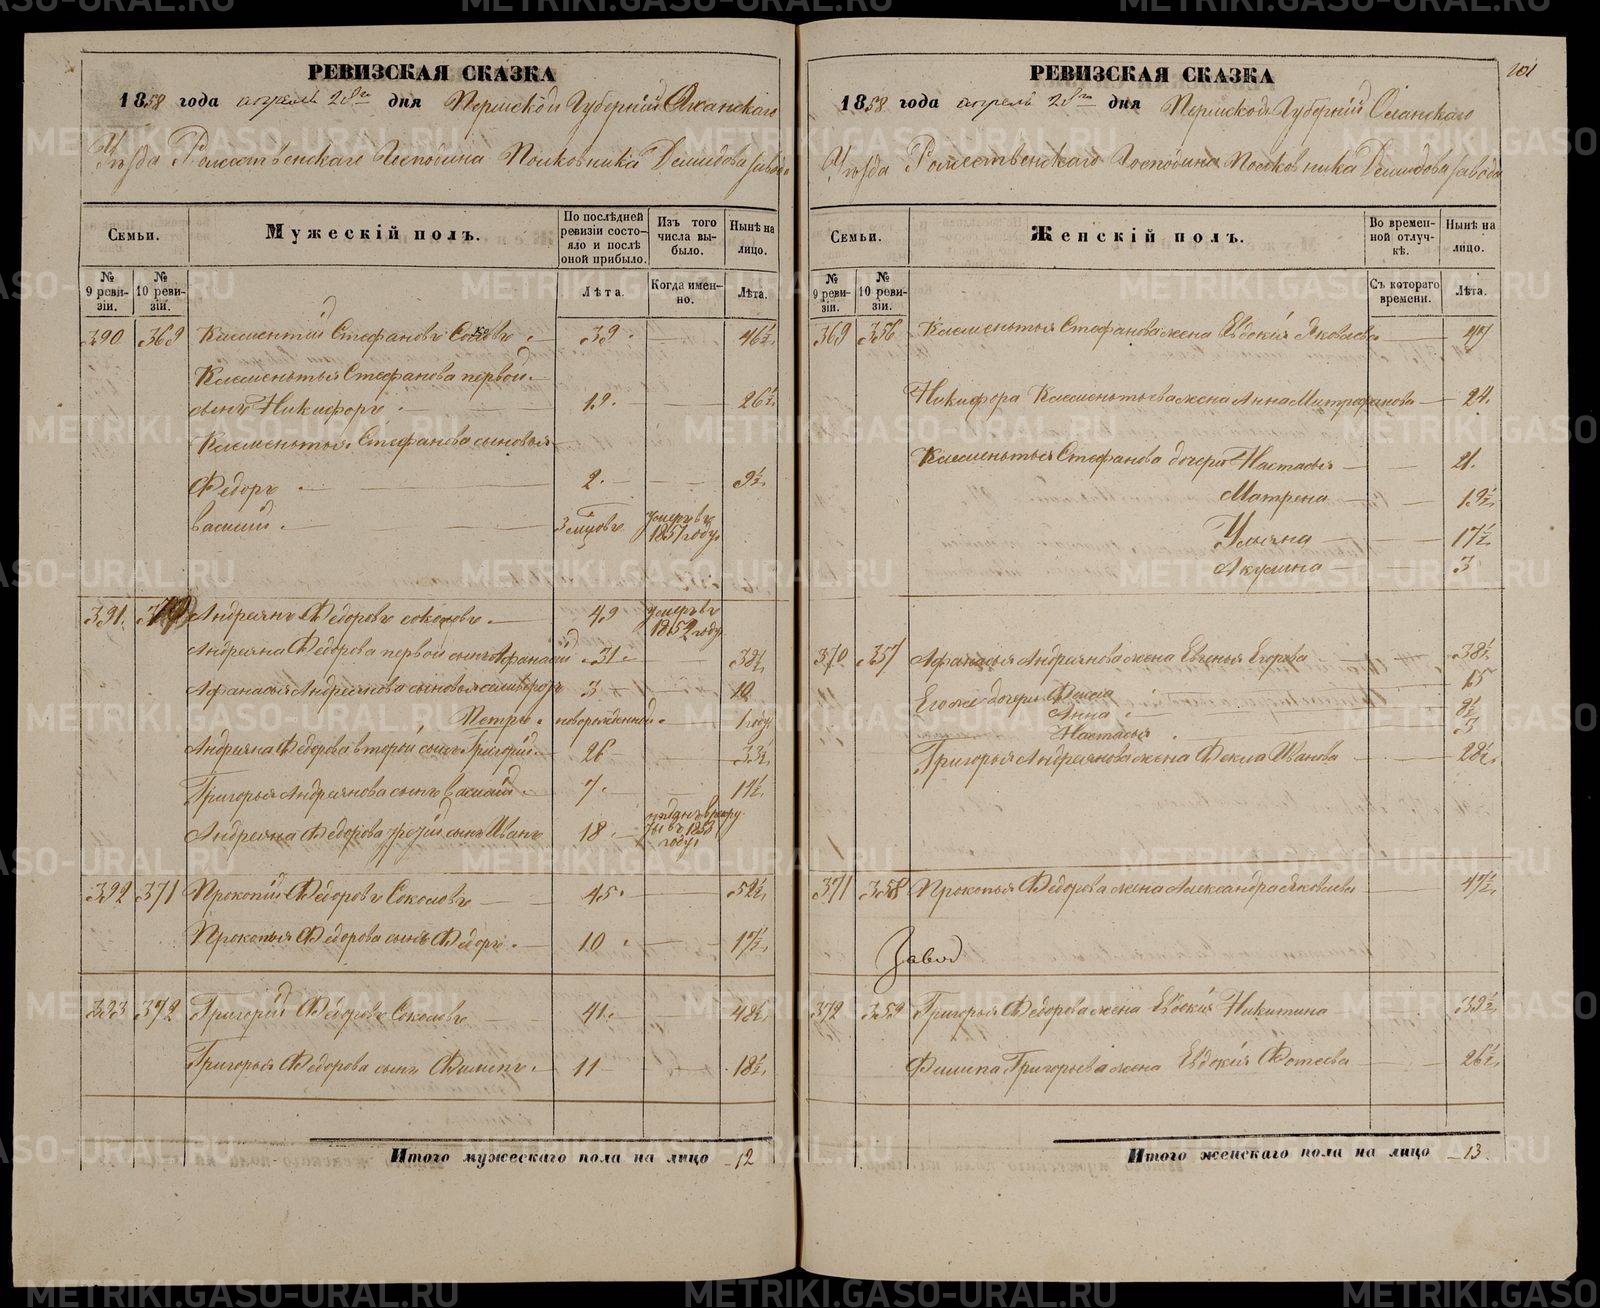 РЕВИЗСКАЯ СКАЗКА
1858 года апрель 28го дня Пермской Губерніи Оханскаго
Уѣзда Рожественскаго Господина Полковника Демидова завода
Семьи.
Мужескій полъ.
По послѣдней ревизіи состояло и послѣ оной прибыло.
Изъ того числа выбыло.
Нынѣ на лицо.
№ 9 ревизіи.
№ 10 ревизіи.
Лѣта.
Когда именно.
Лѣта.
390 369 Клементій Стефановъ 39. 46½
Клементья Стефанова первой
сынъ Никифоръ 19. 26½
Клементья Стефанова сыновья
Федоръ 2. 9½
Василій 3 мцовъ умеръ въ 1851 году
391. 370 Андреянъ Федоровъ Соколовъ. 49 умеръ въ 1852 году
Андреяна Федорова первой сынъ Афанасій 31. 38½
Афанасья Андреянова сыновья 3 10
Петръ новорожденный 1 году
Андреяна Федорова второй сынъ Григорій 26 33½
Григорья Андреянова сынъ Василій 7. 14½
Андреяна Федорова третій сынъ Иванъ 18. году
392 371 Прокопій Федоровъ Соколовъ 45. 52½
Прокопья Федорова сынъ Федоръ 10 17½
393 372 Григорій Федоровъ Соколовъ 41. 48½
Григорья Федорова сынъ Филипъ 11 18½
Итого мужескаго пола на лицо 12
РЕВИЗСКАЯ СКАЗКА
201
1858 года апрель 28го дня Пермской Губерніи Оханскаго
Уѣзда Рожественскаго Господина Полковника Демидова завода
Семьи.
Женскій полъ.
Во временной отлучкѣ.
Нынѣ на лицо.
№ 9 ревизіи.
№ 10 ревизіи.
Съ котораго времени.
Лѣта.
369 356 Клементья Стефанова жена Евдокія Яковлева
Никифора Клементьева жена Анна Митрофанова 24.
Клементья Стефанова дочери Настасья 21.
Матрена 19½
Ульяна 17½
Акулина 3
370 357 Афанасья Андреянова жена Евгенья Егорова 38½
Его же дочери 15
Анна 8½
Настасья 3
Григорья Андреянова жена Фекла Иванова 28½
371 358 Прокопья Федорова жена Александра Яковлева 47½
Завод
372 359 Григорья Федорова жена Евдокія Никитина 39½
Филипа Григорьева жена Евдокія Фотеева 26½
Итого женскаго пола на лицо 13
METRIKI.GASO-URAL.RU